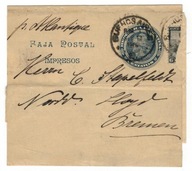 pr Atlantique
FAJA POSTAL
IMPRESOS
BUENOS AI
Herrn C. Stapelfeldt
Nordd. Lloyd
Bremen